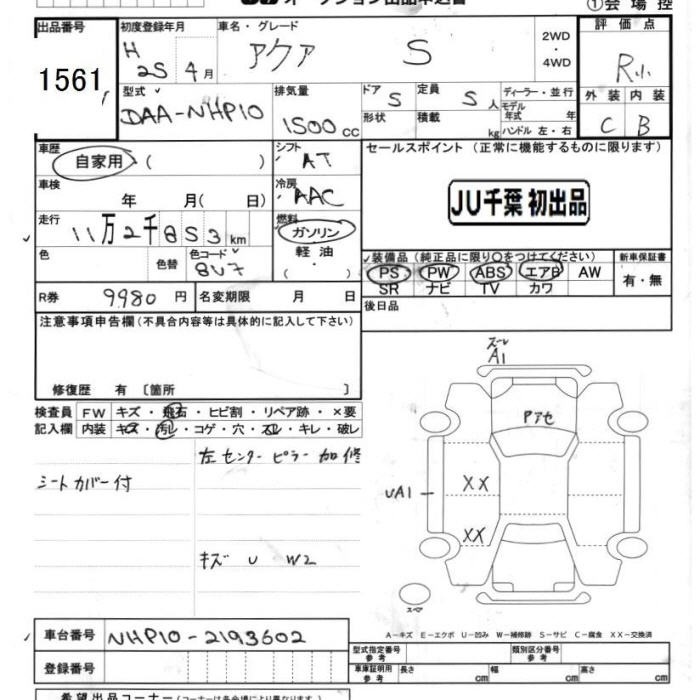 オークション出品申込書
①会場控
出品番号
1561
初度登録年月
H 25 4月
車名・グレード
アクア S
2WD
・
4WD
評価点
R小
外装 内装
C B
型式
DAA-NHP10
排気量
1500 cc
ドア 5
定員 5 人
形状
積載 kg
ディーラー・並行
モデル年式 年
ハンドル 左・右
車歴
自家用 ( )
シフト
AT
車検
年 月( 日)
冷房
AAC
走行
11万2千853km
燃料
ガソリン
軽油
・( )
色
色替
色コード
8V7
R券 9980円
名変期限 月 日
セールスポイント (正常に機能するものに限ります)
JU千葉 初出品
装備品 (純正品に限り○をつけてください)
新車保証書
PS PW ABS エアB AW
SR ナビ TV カワ
有・無
後日品
注意事項申告欄(不具合内容等は具体的に記入して下さい)
修復歴 有 〔箇所 〕
検査員
記入欄
FW キズ・飛石・ヒビ割・リペア跡・×要
内装 キズ・汚レ・コゲ・穴・スレ・キレ・破レ
左センターピラー加修
シートカバー付
キズ U W2
ズレ
A1
Pアセ
UA1
XX
XX
スペア
A-キズ E-エクボ U-凹み W-補修跡 S-サビ C-腐食 XX-交換済
車台番号 NHP10-2193602
登録番号
型式指定番号
参考
類別区分番号
参考
車庫証明用
参考
長さ cm
幅 cm
高さ cm
希望出品コーナー